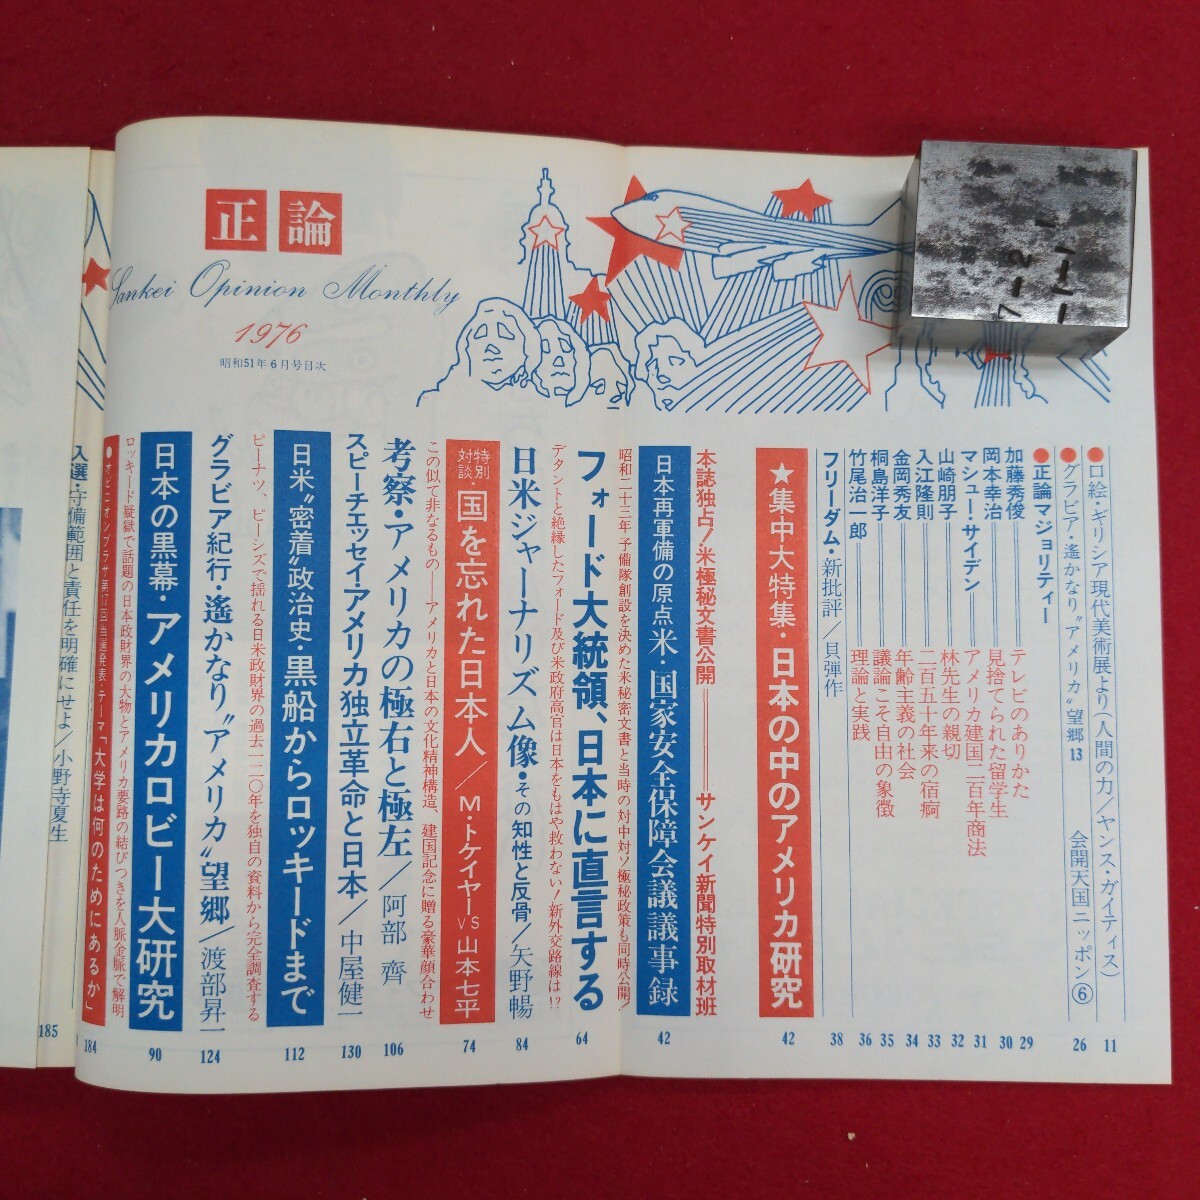 正論
Sankei Opinion Monthly
1976
昭和51年6月号目次
●口絵・ギリシア現代美術展より(人間の力/ヤンス・ガイティス) 11
●グラビア・遙かなり“アメリカ”望郷 13 会開天国ニッポン⑥ 26
●正論マジョリティー
加藤秀俊 テレビのありかた 29
岡本幸治 見捨てられた留学生 30
マシュー・サイデン アメリカ建国二百年商法 31
山崎朋子 林先生の親切 32
入江隆則 二百五十年来の宿痾 33
金岡秀友 年齢主義の社会 34
桐島洋子 議論こそ自由の象徴 35
竹尾治一郎 理論と実践 36
フリーダム・新批評/貝弾作 38
★集中大特集・日本の中のアメリカ研究 42
本誌独占!米極秘文書公開 サンケイ新聞特別取材班
日本再軍備の原点 米・国家安全保障会議議事録 42
昭和二十三年予備隊創設を決めた米秘密文書と当時の対中対ソ極秘政策も同時公開!
フォード大統領、日本に直言する 64
デタントと絶縁したフォード及び米政府高官は日本をもはや救わない!新外交路線は!?
日米ジャーナリズム像・その知性と反骨/矢野暢 84
特別対談・国を忘れた日本人/M・トケイヤーVS山本七平 74
この似て非なるもの――アメリカと日本の文化精神構造、建国記念に贈る豪華顔合わせ
考察・アメリカの極右と極左/阿部 齊 106
スピーチエッセイ・アメリカ独立革命と日本/中屋健一 130
日米“密着”政治史・黒船からロッキードまで 112
ピーナツ、ピーシズで揺れる日米政財界の過去一二〇年を独自の資料から完全調査する
グラビア紀行・遙かなり“アメリカ”望郷/渡部昇一 124
日本の黒幕・アメリカロビー大研究 90
ロッキード疑獄で話題の日本政財界の大物とアメリカ要路の結びつきを人脈金脈で解明
●オピニオンプラザ第17回当選発表・テーマ「大学は何のためにあるか」 184
入選・守備範囲と責任を明確にせよ/小野寺夏生 185